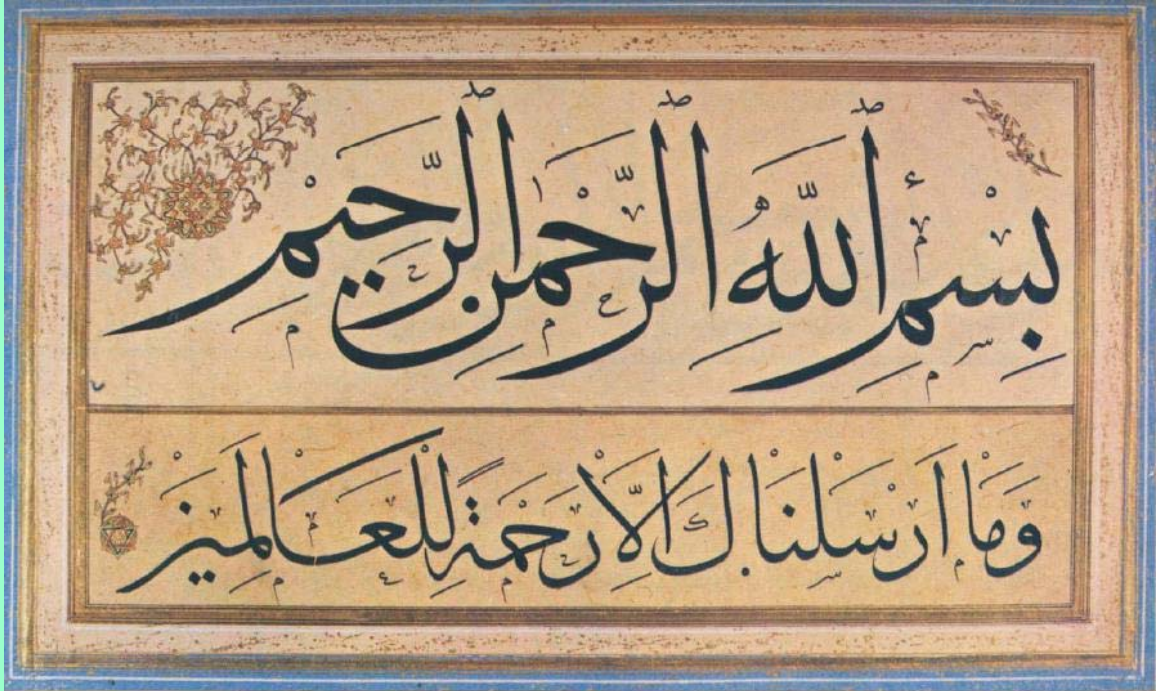 بِسْمِ ٱللّٰهِ ٱلرَّحْمٰنِ ٱلرَّحِيمِ
وَمَا اَرْسَلْنَاكَ اِلَّا رَحْمَةً لِلْعَالَمِينَ